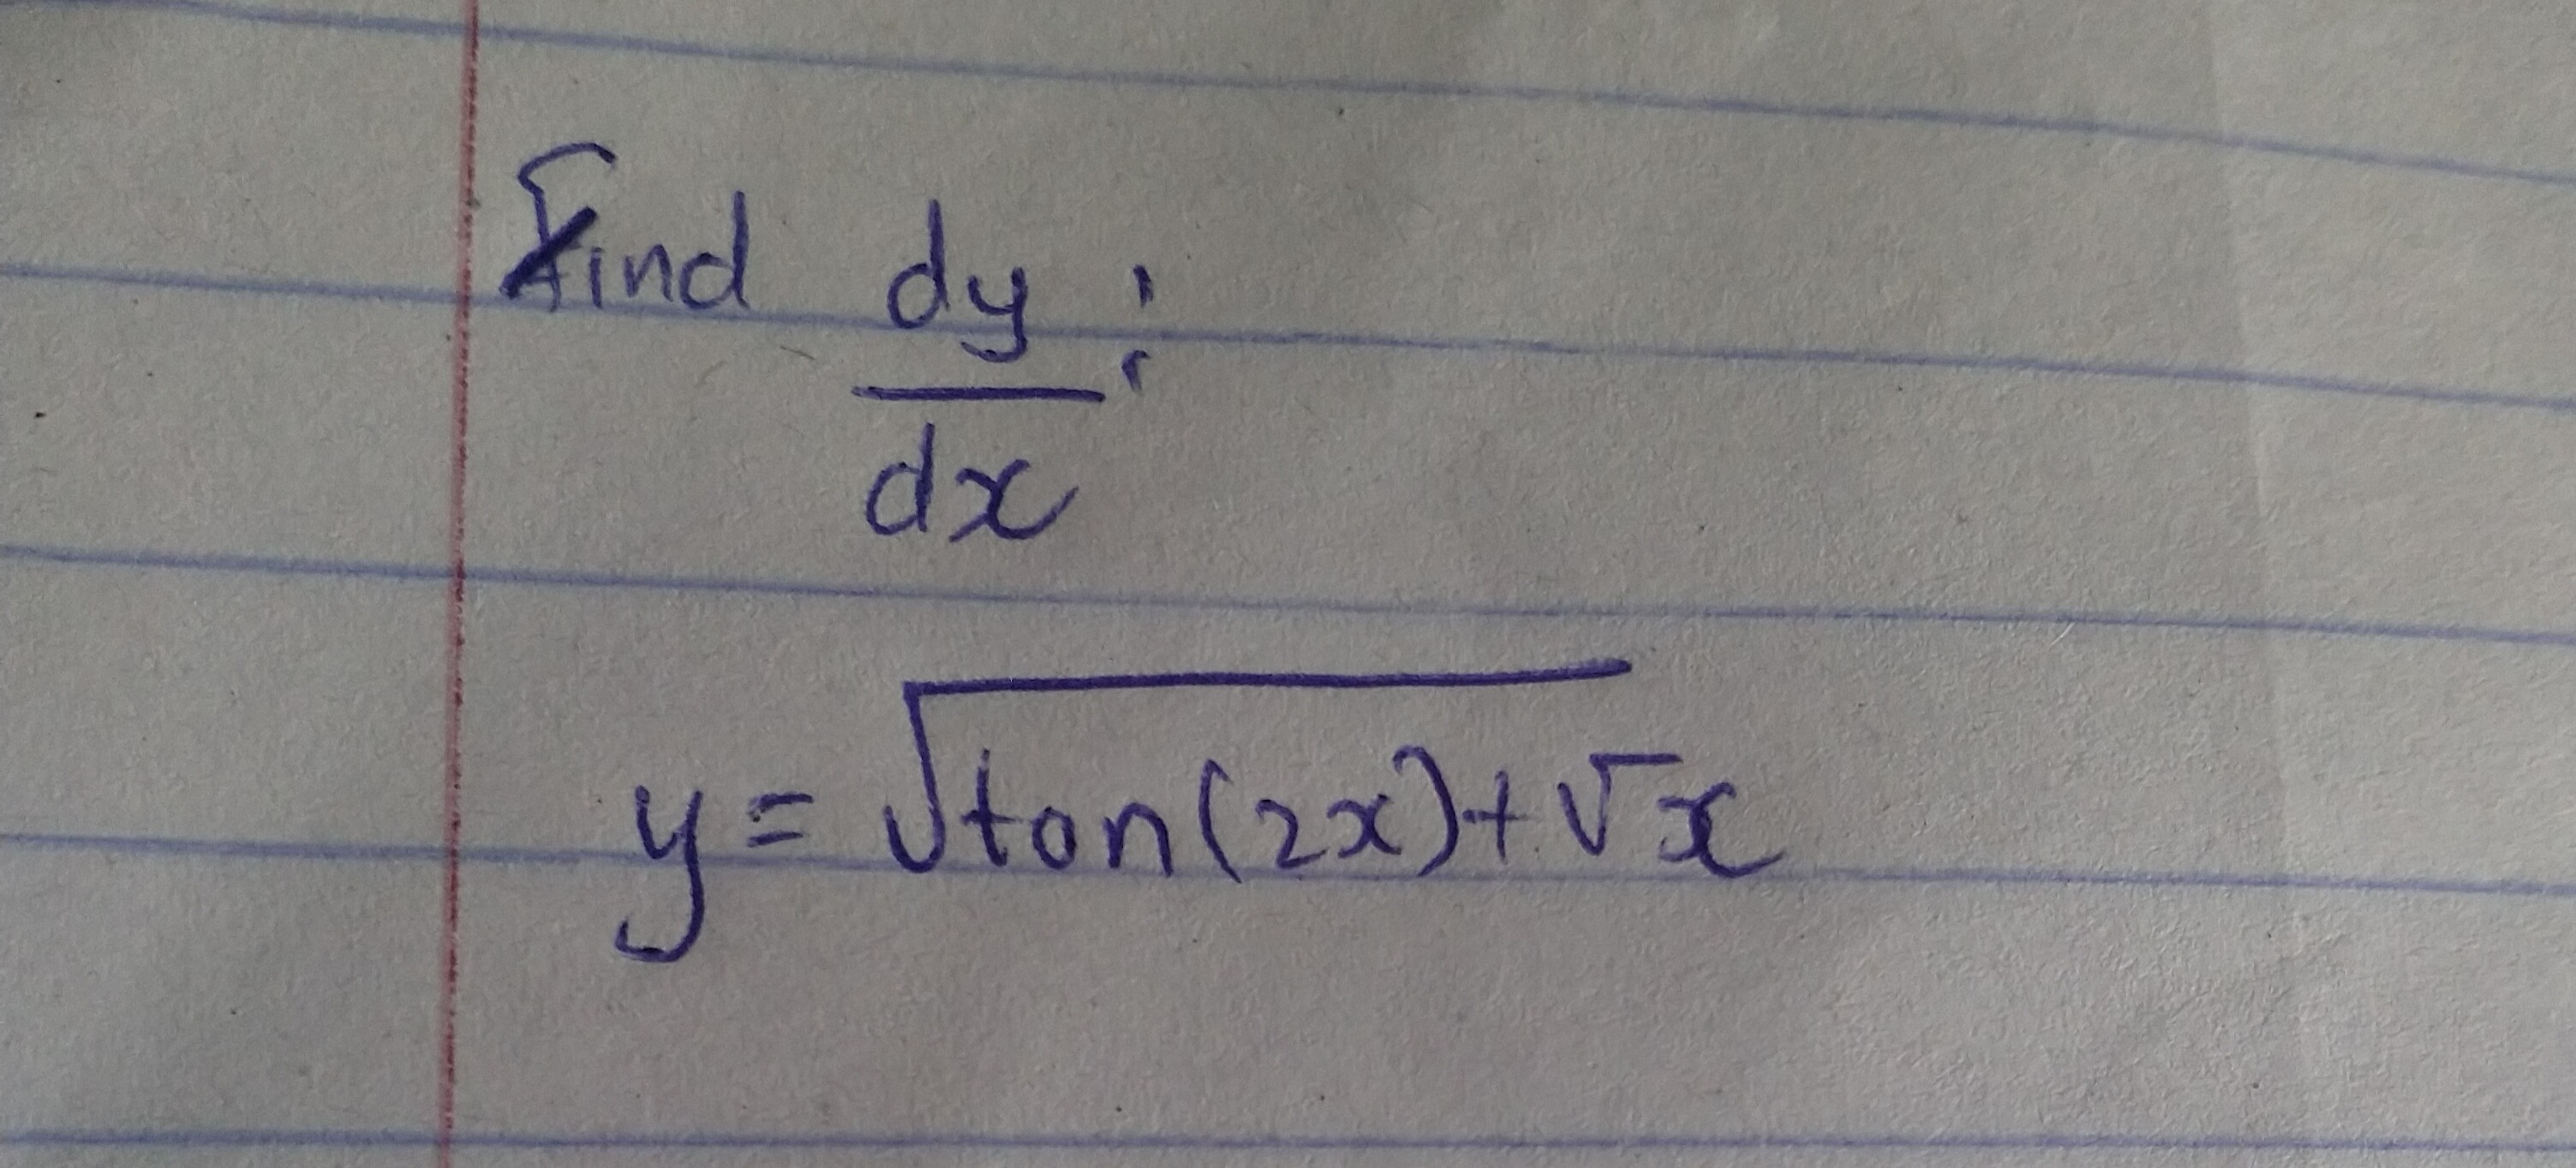 Find dy/dx:
y = √(tan(2x) + √x)